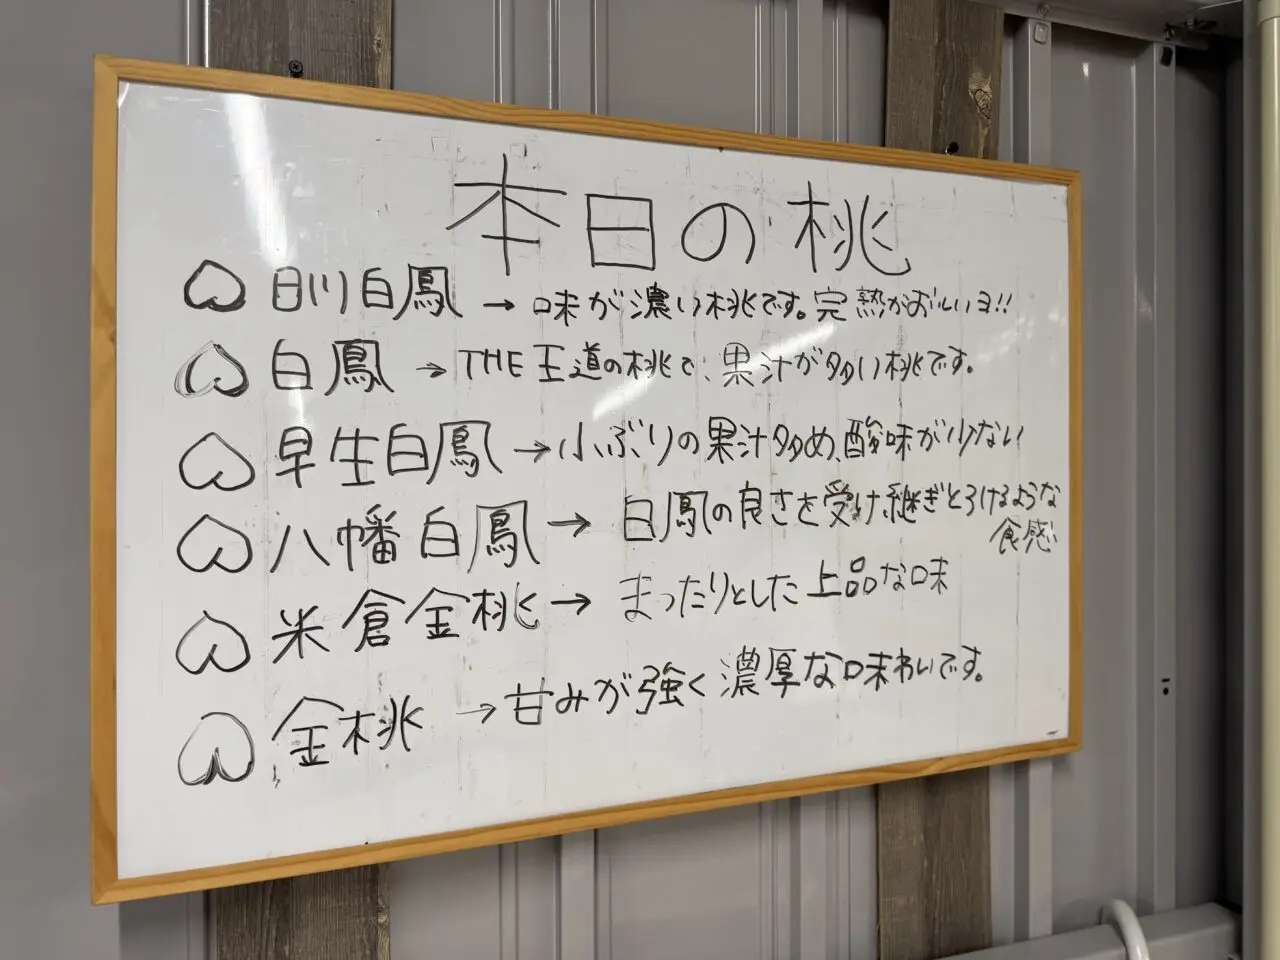 本日の桃
日川白鳳 → 味が濃い桃です。完熟がおいしいヨ!!
白鳳 → THE王道の桃で、果汁が多い桃です。
早生白鳳 → 小ぶりの果汁多め、酸味が少ない
八幡白鳳 → 白鳳の良さを受け継ぎとろけるような
食感
米倉金桃 → まったりとした上品な味
金桃 → 甘みが強く濃厚な味わいです。